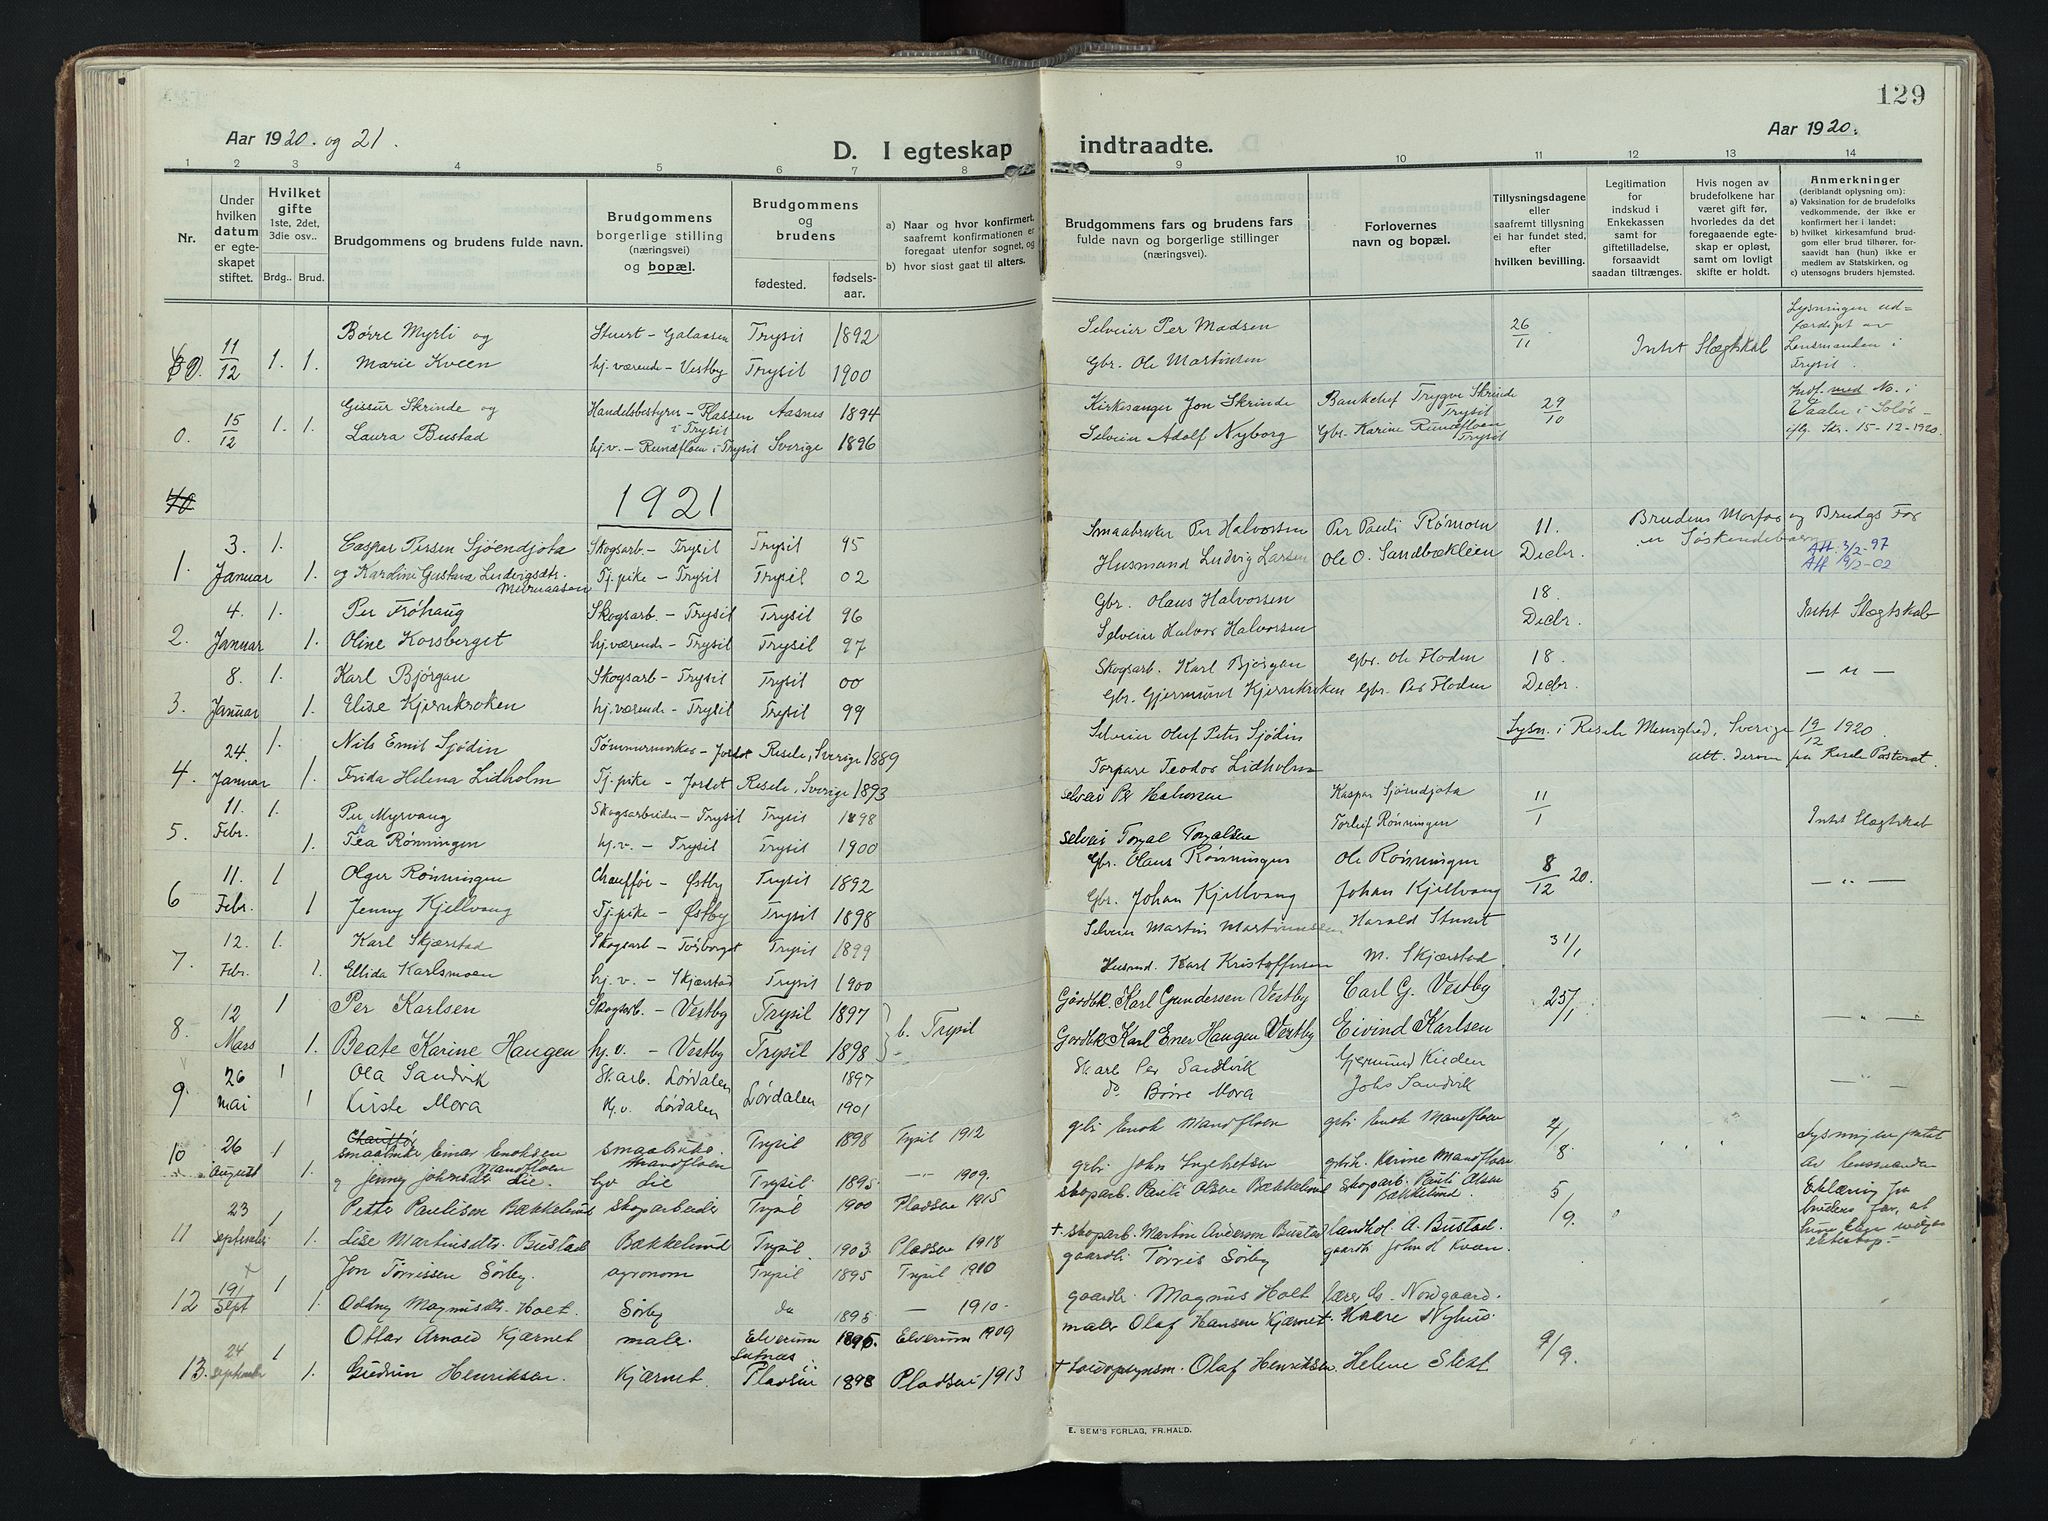 129
Aar 1920. og 21.
D. I egteskap indtraadte.
Aar 1920.
1 2 3 4 5 6 7 8 9 10 11 12 13 14
Nr.
Under hvilken datum er egteskapet stiftet.
Hvilket gifte 1ste, 2det, 3die osv..
Brdg.. Brud.
Brudgommens og brudens fulde navn.
Brudgommens borgerlige stilling (næringsvei) og bopæl.
Brudgommens og brudens
fødested.
fødselsaar.
a) Naar og hvor konfirmert, saafremt konfirmationen er foregaat utenfor sognet, og
b) hvor sisst gaat til alters.
Brudgommens fars og brudens fars fulde navn og borgerlige stillinger (næringsvei).
Forlovernes navn og bopæl.
Tillysningsdagene eller saafremt tillysning ei har fundet sted, efter hvilken bevilling.
Legitimation for indskud i Enkekassen samt for giftetilladelse, forsaavidt saadan tiltrænges.
Hvis nogen av brudefolkene har været gift før, hvorledes da det foregaaende egteskap er opløst, samt om lovligt skifte er holdt.
Anmerkninger (deriblandt oplysning om): a) Vaksination for de brudefolks vedkommende, der ikke er konfirmert her i landet; b) hvilket kirkesamfund brudgom eller brud tilhører, forsaavidt han (hun) ikke er medlem av Statskirken, og c) utensogns bruders hjemsted.
11/12 1. 1. Børre Myrli og Stuert - Galaasen Trysil 1892 Selveier Per Madsen 26/11 Intet Slægtskab Lysningen udfærdigt av Lensmanden i Trysil.
Marie Kveen hj. værende - Vestby Trysil 1900 Gbr. Ole Martinsen
0. 15/12 1. 1. Gissur Skrinde og Handelsbestyrer - Plassen i Trysil Aasnes 1894 Kirkesanger Jon Skrinde Bankchef Trygve Skrinde Trysil 29/10 Indf. med No. i Vaaler i Solør - iflg. Skr. 15-12-1920.
Laura Bustad hj.v. - Rundfloen i Trysil Sverige 1896 Selveier Adolf Nyborg Gbr. Karine Rundfloen Trysil
1921
1. 3. Januar 1. Caspar Persen Sjøendjota Skogsarb. - Trysil Trysil 95 Smaabruker Per Halvorsen Per Pauli Rømoen 11. Decbr. Brudens Morfar og Brudgs Far er Søskendebarn
1. og Kardine Gustava Ludvigsdtr. Tj.pike - Trysil Trysil 02 Husmand Ludvig Larsen Ole O. Sandbækleien Att. 3/2-97 Att 19/2-02
2. 4. Januar 1. Per Frøhaug Skogsarb - Trysil Trysil 96 Gbr. Olaus Halvorsen 18. Decbr. Intet Slægtskab
1. Oline Korsberget hj. værende - Trysil Trysil 97 Selveier Halvor Halvorsen
3. 8. Januar 1. Karl Bjørgan Skogsarb - Trysil Trysil 00 Skogsarb. Karl Bjørgan Gbr. Ole Floden 18. Decbr. — " —
1. Elise Kjernkroken hj. værende - Trysil Trysil 99 Gbr. Gjermund Kjernkroken Gbr. Per Floden
4. 24. Januar 1. Nils Emil Sjødin Tømmermerker - Jordet Resele, Sverige 1889 Selveier Oluf Peter Sjødin Lysn. i Resele Menighed, Sverige 19/12 1920.
1. Frida Helena Lidholm Tj.pike - Jordet Resele, Sverige 1893 Torpare Teodor Lidholm Att. derom fra Resele Pastorat.
5. 11. Febr. 1. Per Myrvang Skogsarbeider - Trysil Trysil 1898 Selveier Per Halvorsen Kaspar Sjøendjota 11/1 Intet Slægtskab
1. Tea Rønningen hj.v. - Trysil Trysil 1900 Selveier Torgal Torgalsen Torleif Rønningen
6 11. Febr. 1 Olger Rønningen Chauffør - Østby Trysil 1892 Gbr. Olaus Rønningen Ole Rønningen 8/12 20. — " —
1 Jenny Kjellvang Tj.pike - Østby Trysil 1898 Gbr. Johan Kjellvang Johan Kjellvang
7. 12. Febr. 1. Karl Skjærstad Skogsarb - Torberget Trysil 1899 Selveier Martin Martinussen Harald Sturet 31/1
1. Ellida Karlsmoen hj.v. - Skjærstad Trysil 1900 Husmd. Karl Kristoffersen M. Skjærstad
8. 12 Mars 1 Per Karlsen Skogsarb. - Vestby Trysil 1897 b. Trysil Gårdbk. Karl Gundersen Vestby Carl G. Vestby 25/1 — " —
1. Beate Karine Haugen hj.v. - Vestby Trysil 1898 Gårdbk. Karl Ener Haugen Vestby Eivind Karlsen
9. 26 mai 1 Ola Sandvik Sk.arb. Lørdalen Lørdalen 1897 Sk.arb Per Sandvik Gjermund Kilden — " —
1 Kirste Mora hj.v. Lørdalen 1901 do Børre Mora Johs Sandvik
10 26 August 1 Chauffør smaabruker Einar Enoksen Mandfloen smaabruker Mandfloen Trysil 1898 Trysil 1912 gbr. Enok Mandfloen gbr. Enok Mandfloen 4/8. Lysningen foretat av lensmanden
1. og Jenny Johnsdtr Lie. hjv Lie Trysil. 1895 — 1909. gbr. John Ingebretsen gbrk. Karine Mandfloen
11 23 september 1 Petter Paulisen Bækkelund skogarbeider Trysil 1900 Pladsen 1915 skogarb. Pauli Olsen Bækkelund skogarb. Pauli Olsen Bækkelund. 5/9. Erklæring fra brudens far, at
1. Lise Martinsdtr. Bustad Bækkelund Trysil 1903. Pladsen 1918 + skogarb. Martin Andersen Bustad landhdl. A. Bustad.
12 19/ Sept 1 Jon Tørrissen Sørby. agronom Trysil 1895 Trysil 1910 gaardbr. Tørris Sørby gaardb John d Kveen
1. Oddny Magnusdtr. Holt. Sørby do 1895 — 1910. gaardbr. Magnus Holt lærer Nordgaard.
13. 24 september 1 Ottar Arnold Kjærnet maler Elverum 1895. Elverum 1909 maler Olaf Hansen Kjærnet Kaare Nyhus. 9/9.
1. Gudrun Henriksen. Kjærnet. Pladsen 1898 Pladsen 1913 + Olaf Henriksen Helene
E. SEM'S FORLAG, FR.HALD.